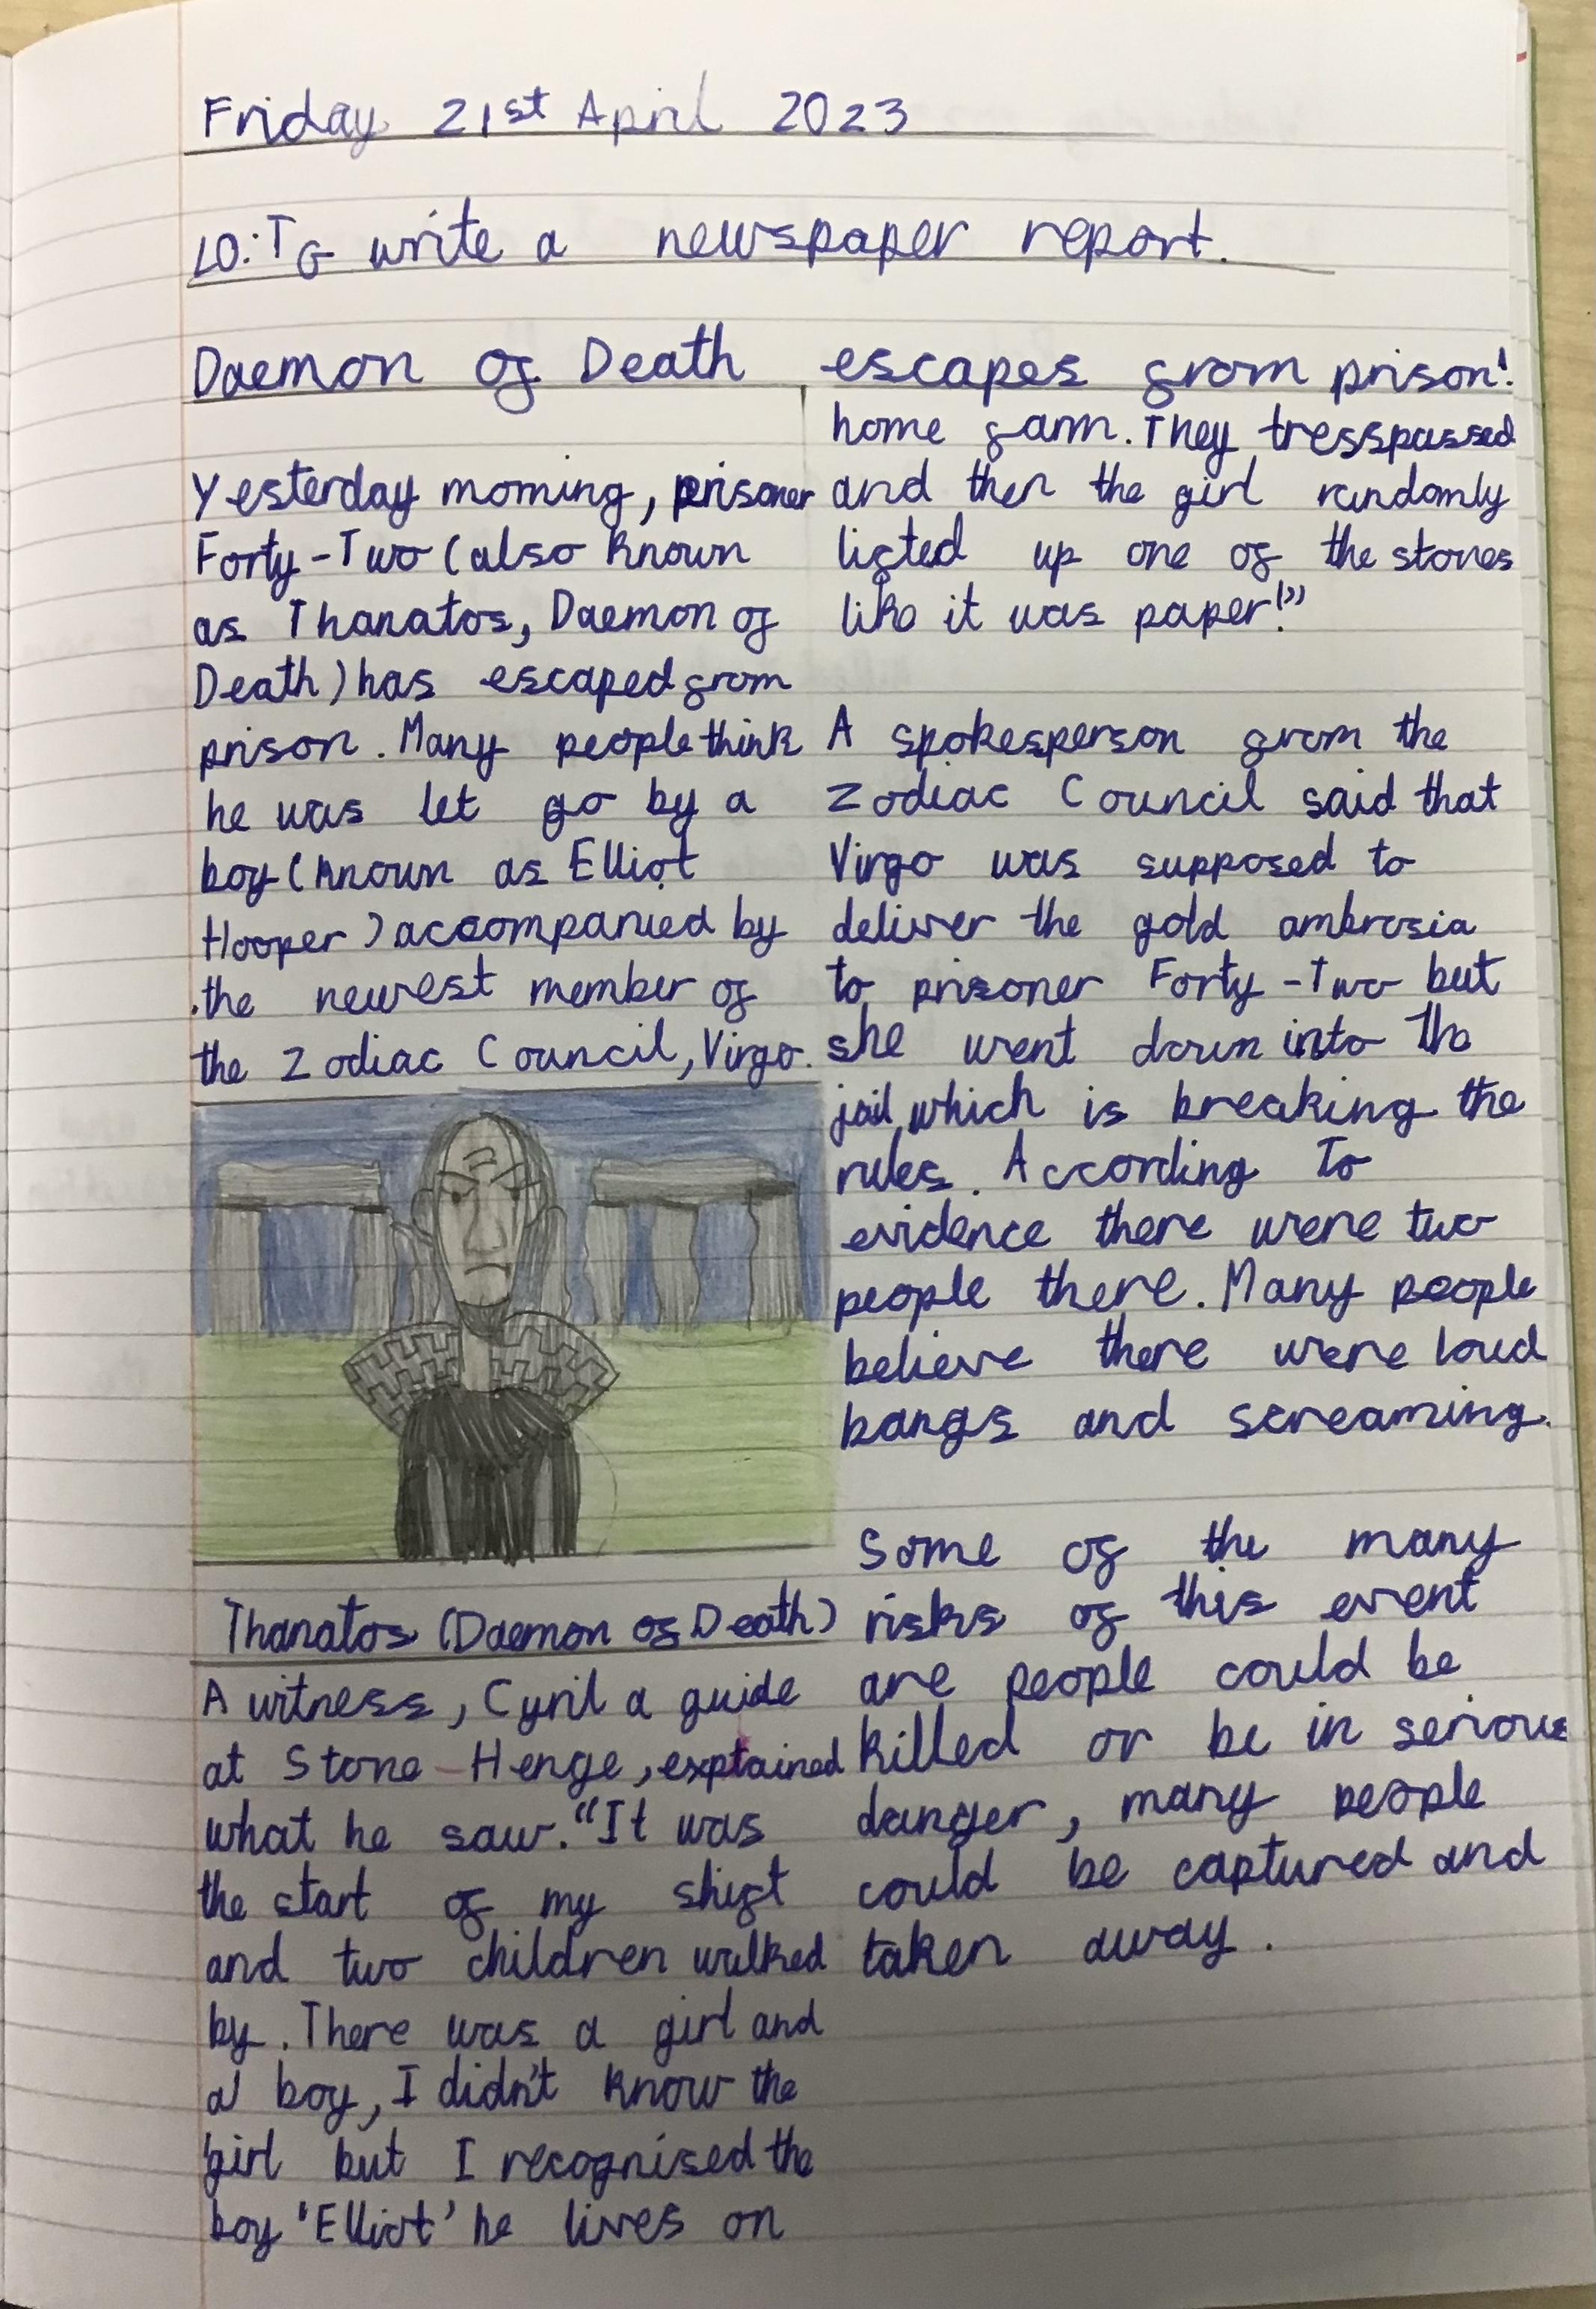 Friday 21st April 2023
LO: To write a newspaper report.
Daemon of Death escapes from prison!
Yesterday morning, prisoner
Forty-Two (also known
as Thanatos, Daemon of
Death) has escaped from
prison. Many people think
he was let go by a
boy (known as Elliot
Hooper) accompanied by
the newest member of
the Zodiac Council, Virgo.
Thanatos (Daemon of Death)
A witness, Cyril a guide
at Stone-Henge, explained
what he saw. "It was
the start of my shift
and two children walked
by. There was a girl and
a boy, I didn't know the
girl but I recognised the
boy 'Elliot' he lives on
home farm. They tresspassed
and then the girl randomly
lifted up one of the stones
like it was paper!"
A spokesperson from the
Zodiac Council said that
Virgo was supposed to
deliver the gold ambrosia
to prisoner Forty-Two but
she went down into the
jail, which is breaking the
rules. According To
evidence there were two
people there. Many people
believe there were loud
bangs and screaming.
Some of the many
risks of this event
are people could be
killed or be in serious
danger, many people
could be captured and
taken away.